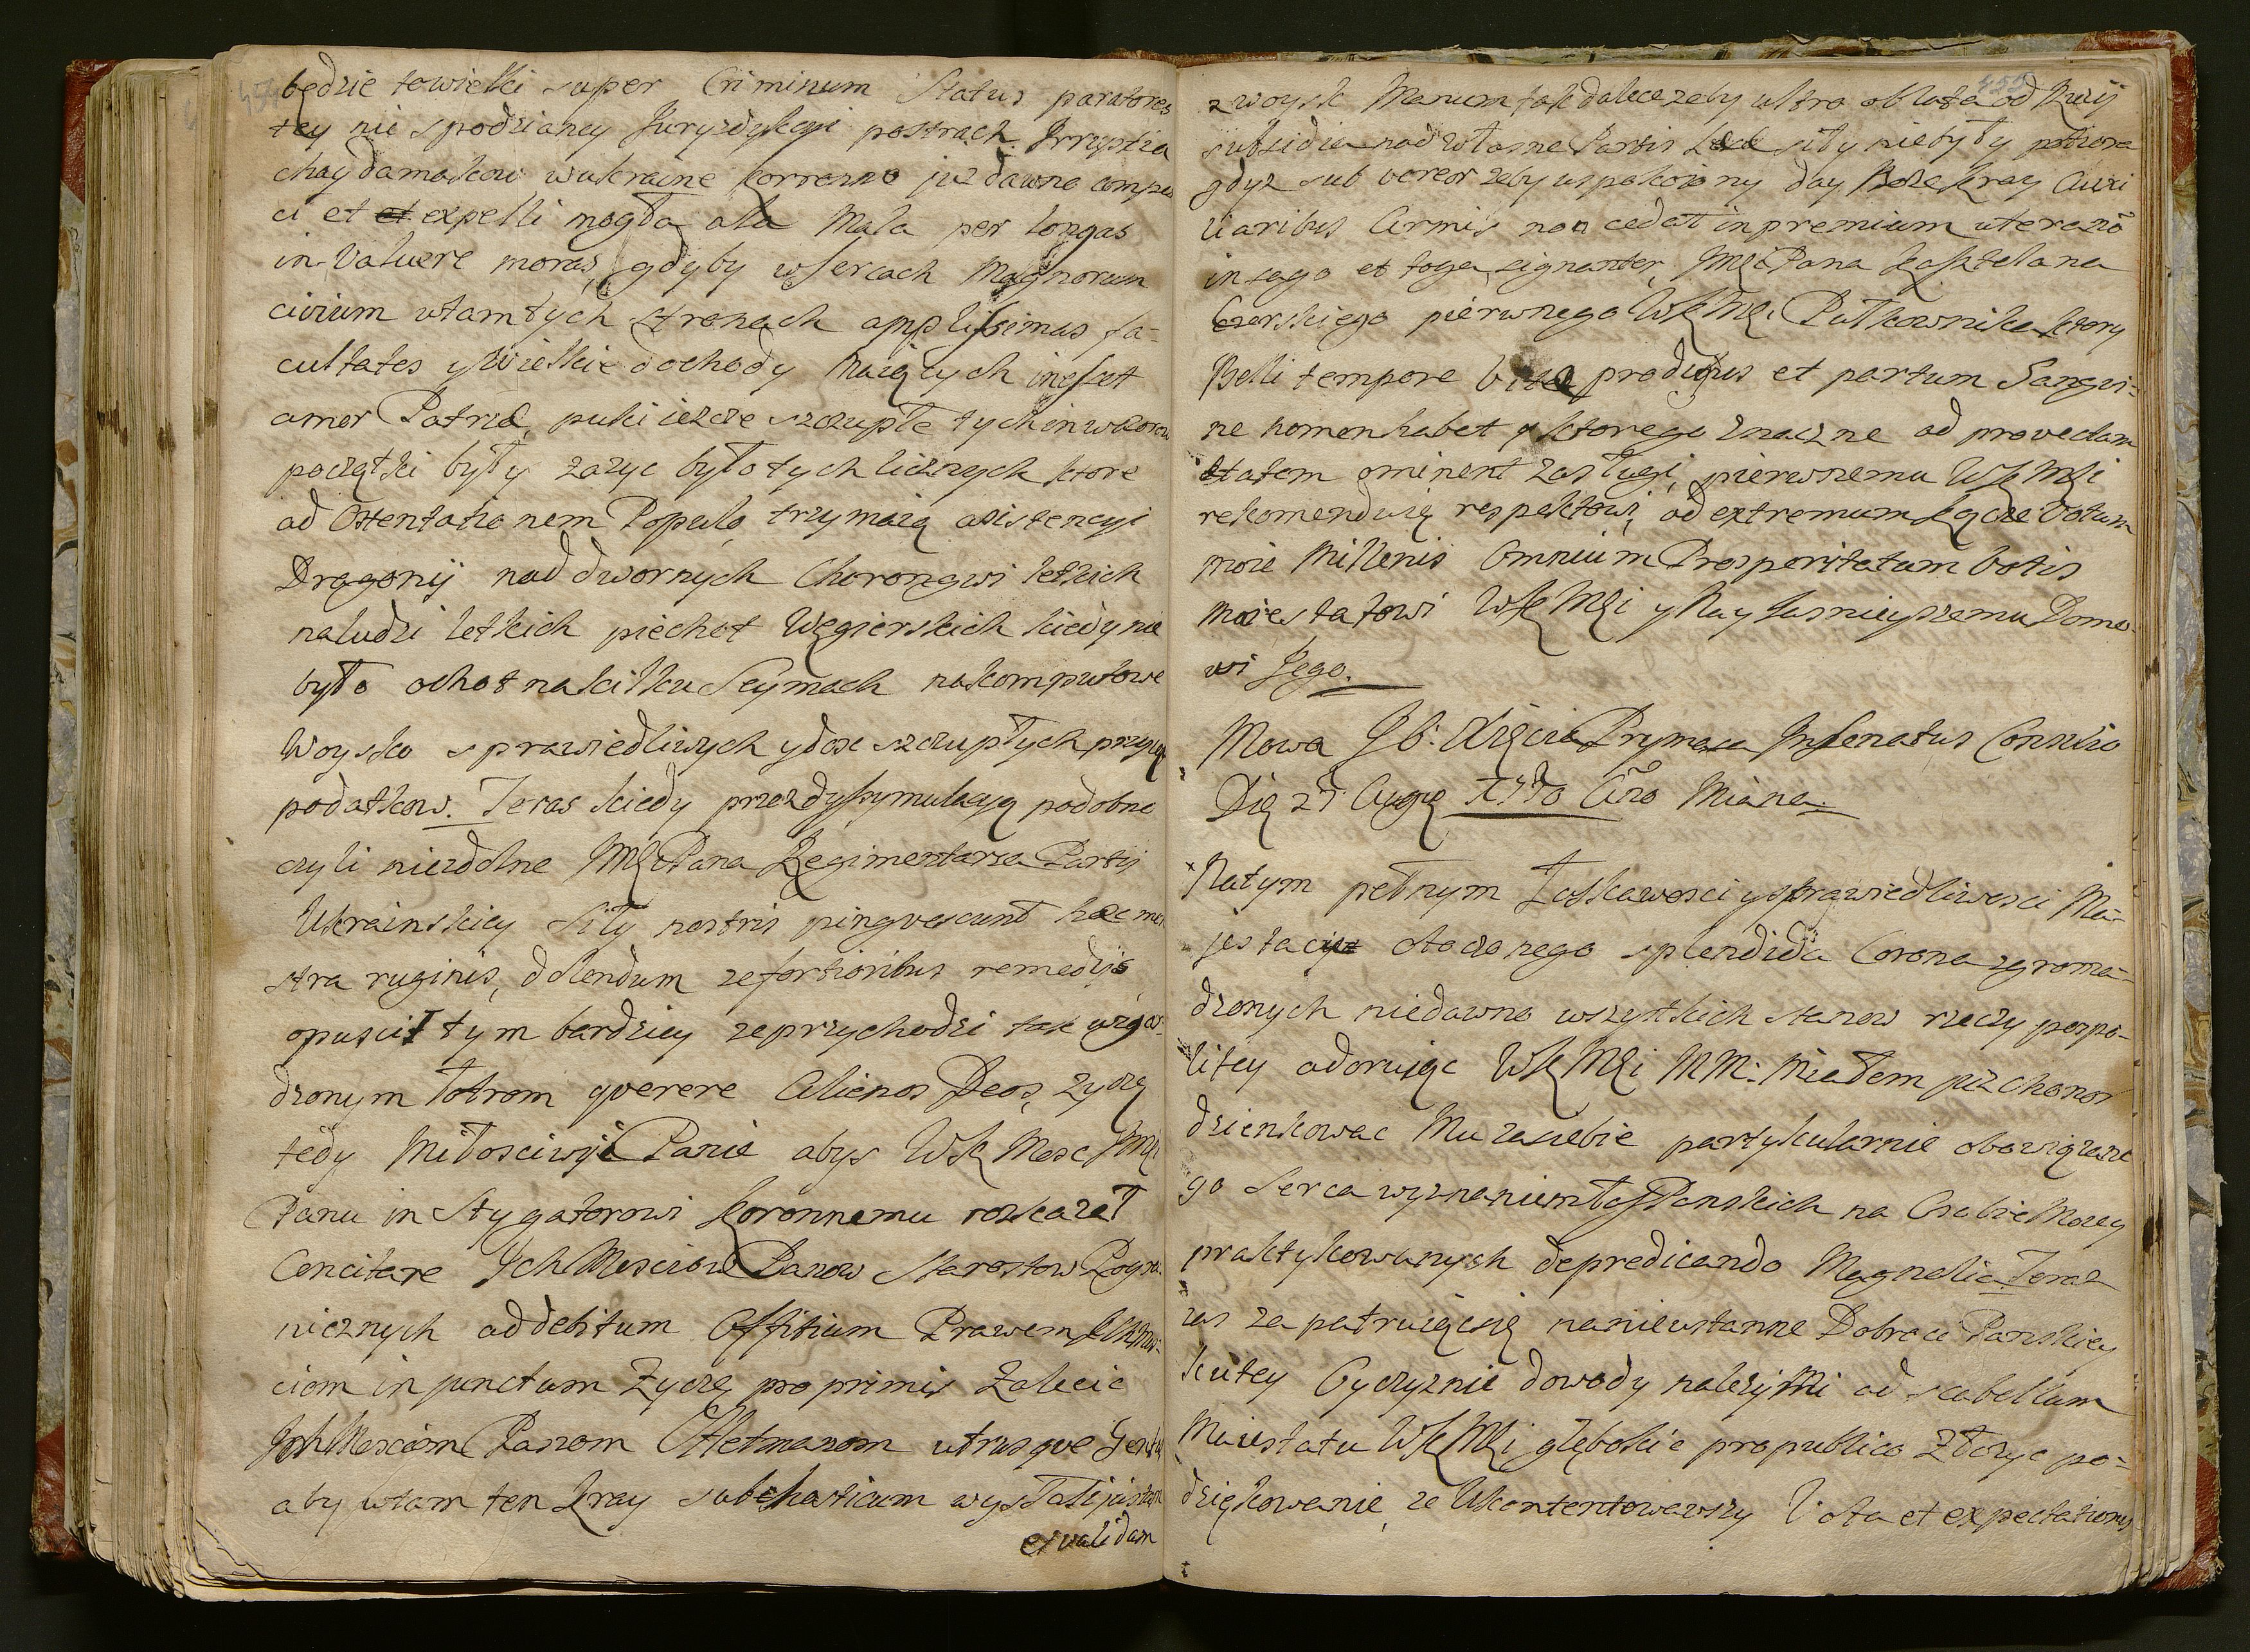 454
będzie towielki super Criminum Status paratores
tey nie spodzianey Juryzdykcyi postrach. Irruptia
chaydamakow wukrainę korrozno juz dawno compes
ci et et expelli mogła ala Mala per longas
in Valuere moras, gdyby wsercach Magnorum
civium wtamtych stronach amplissimas fa-
cultates y wielkie dochody maiących inesset
amor Patriæ, puki ieszcze szczupłe tych inwazorow
początki były zazyc było tych licznych ktore
ad Ostentationem Populo trzymaią asistencyi
Dragonij nad dwornych Chorongwi letkich
naludzi letkich piechot Węgierskich kiedy nie
było ochot nakilku Seymach nakomputowe
Woysko sprawiedliwych y dosc szczupłych przyiąc
podatkow. Teras kiedy przez dyssymulacyą podobno
czyli niezdolne JMći Pana Regimentarza Partij
Ukrainskiey siły nostris pingvescunt hæc mon
stra ruginis, dolendum zefortioribus remedijs
opuscił tym bardziey zeprzychodzi tak wzgar-
dzonym łotrom qverere Alienos Deos, zyczę
tedy Miłosciwyi Panie abys WK Mosc JMći
Panu in Stygatorowi koronnemu roskazał
Concitare Ych Mosciow Panow Starostow Pogra-
nicznych ad debitum Offitium Prawem JchMos-
ciom in junctum Zyczę pro primis Zalecic
Jch Mosciom Panom Hetmanom utrusqve Gentis
aby wtam ten kray sub chasticum wysłali justam
et validam
455
z woysk Manum tak dalece zeby ultra oblata od Ruzij
subsidia nad własne Partis siły niebyły potrzeba
gdyz sub vereor zeby uspokoiony day Boze kray Auxi
liaribus Armis non cedat in premium uteranõ
in sago et toga signanter JMći Pana Kasztelana
Czerskiego pierwnego WKMći Pułkownika ktory
Belli tempore vitæ prodigus et partum Sangvi-
ne nomen habet y ktorego znaczne ad provectam
ætatem eminent zasługi, pierwszemu WKMći
rekomenduię respektowi, ad extremum kączę Votum
moie Millenis Omnium Prosperitatum votis
Maiestatowi WKMći y Nay Jasnieyszemu Domo-
wi Jego.
Mowa J O: Xięcia Prymasa In Senatus Consilio
Die 27 Augę 1740 Año Miana.
Natym pełnym Łaskawosci y sprawiedliwosci Ma-
jestacie otoczonego splendida Corona zgroma-
dzonych niedawno wszytkich stanow rzeczy pospo-
litey adorując WKMći MM: Miałem juz honor
dzienkowac Mu zasiebie partykularnie obowiązane
go serca wyznaniem łask Panskich na Osobie Moiey
praktykowanych depredicando Magnalia. Teraz
zas zapatruiącsię nanieustanne Dobroci Panskiey
kutey Oyczyznie dowody nalezyłłi ad scabellum
Maiestatu WKMći głębokie pro publico Złozyc po-
dziękowanie, ze Ukontentowawszy Vota et expectationes